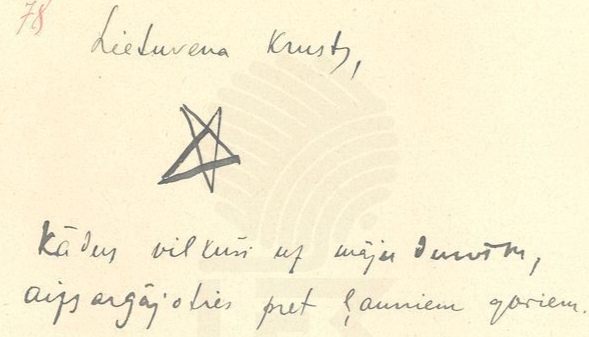 78
Lietuvena Krusts,
Kādus vilkuši uz māju durvīm,
aizsargājoties pret ļauniem gariem.